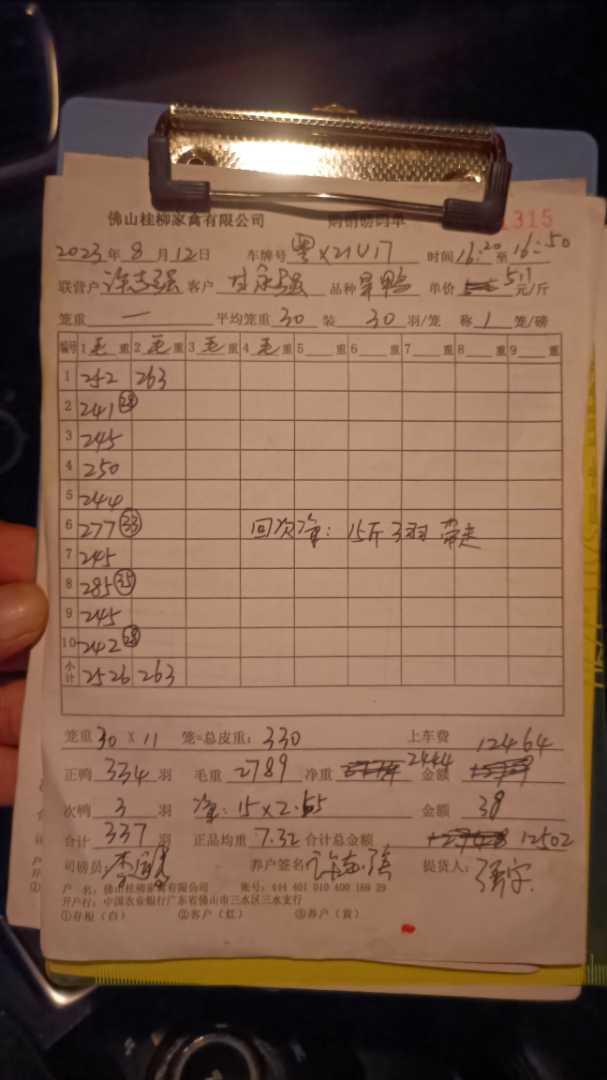 佛山桂柳家禽有限公司 购销磅码单 1315
2023年8月12日 车牌号 粤X21U17 时间16:20至16:50
联营户 客户 品种 单价 5.1元/斤
笼重 一 平均笼重30 装30羽/笼 称1笼/磅
编号 1毛重 2毛重 3毛重 4毛重 5重 6重 7重 8重 9重
1 252 263
2 241 28
3 245
4 250
5 244
6 277 33 回次净: 15斤 3羽 带走
7 245
8 285 35
9 245
10 242 28
小计 2526 263
笼重30X11 笼=总皮重: 330 上车费 12464
正鸭334羽 毛重2789 净重 2444 金额
次鸭3羽 净: 15×2.55 金额38
合计337羽 正品均重7.32 合计总金额 12502
司磅员 养户签名 提货人:
户 名: 佛山桂柳家禽有限公司 账号: 444 401 010 400 169 29
开户行: 中国农业银行广东省佛山市三水区三水支行
①存根(白) ②客户(红) ③养户(黄)